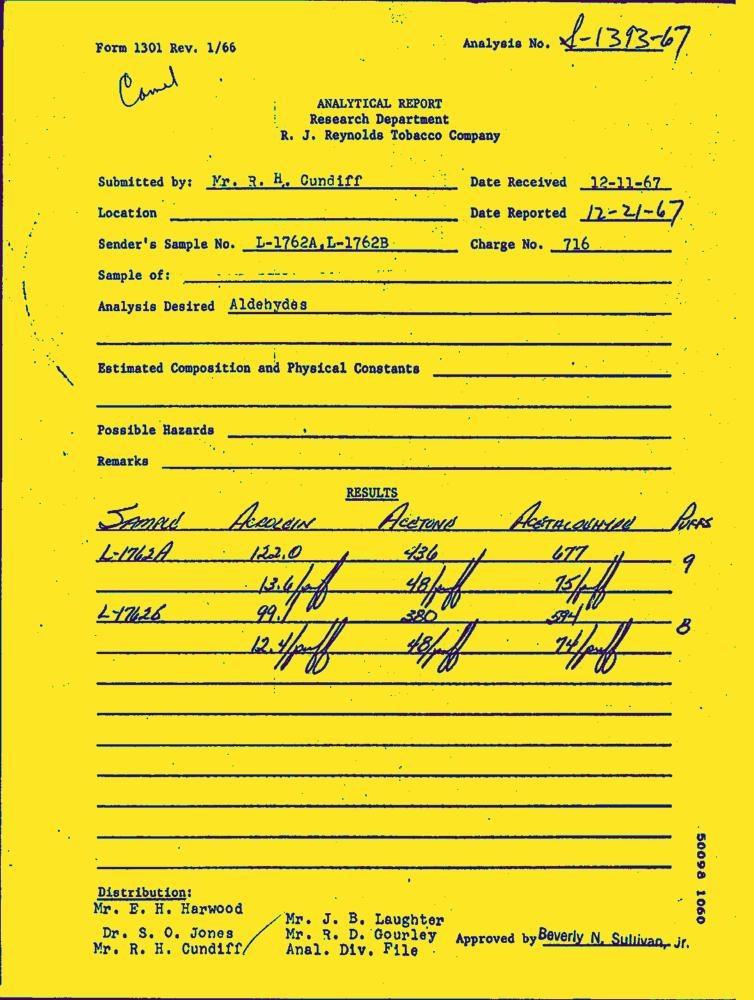 Form 1301 Rev. 1/66
Analysis No. L-1393-67
Camel
ANALYTICAL REPORT
Research Department
R. J. Reynolds Tobacco Company
Submitted by: Mr. R. H. Cundiff Date Received 12-11-67
Location Date Reported 12-21-67
Sender's Sample No. L-1762A,L-1762B Charge No. 716
Sample of:
Analysis Desired Aldehydes
Estimated Composition and Physical Constants
Possible Hazards
Remarks
RESULTS
SAMPLE ACROLEIN ACETONE ACETALDEHYDE PUFFS
L-1762A 122.0 436 677 9
13.6/puff 48/puff 75/puff
L-1762B 99.1 380 594 8
12.4/puff 48/puff 74/puff
Distribution:
Mr. E. H. Harwood
Dr. S. O. Jones
Mr. R. H. Cundiff
Mr. J. B. Laughter
Mr. R. D. Gourley
Anal. Div. File
Approved by Beverly N. Sullivan, Jr.
50098 1060